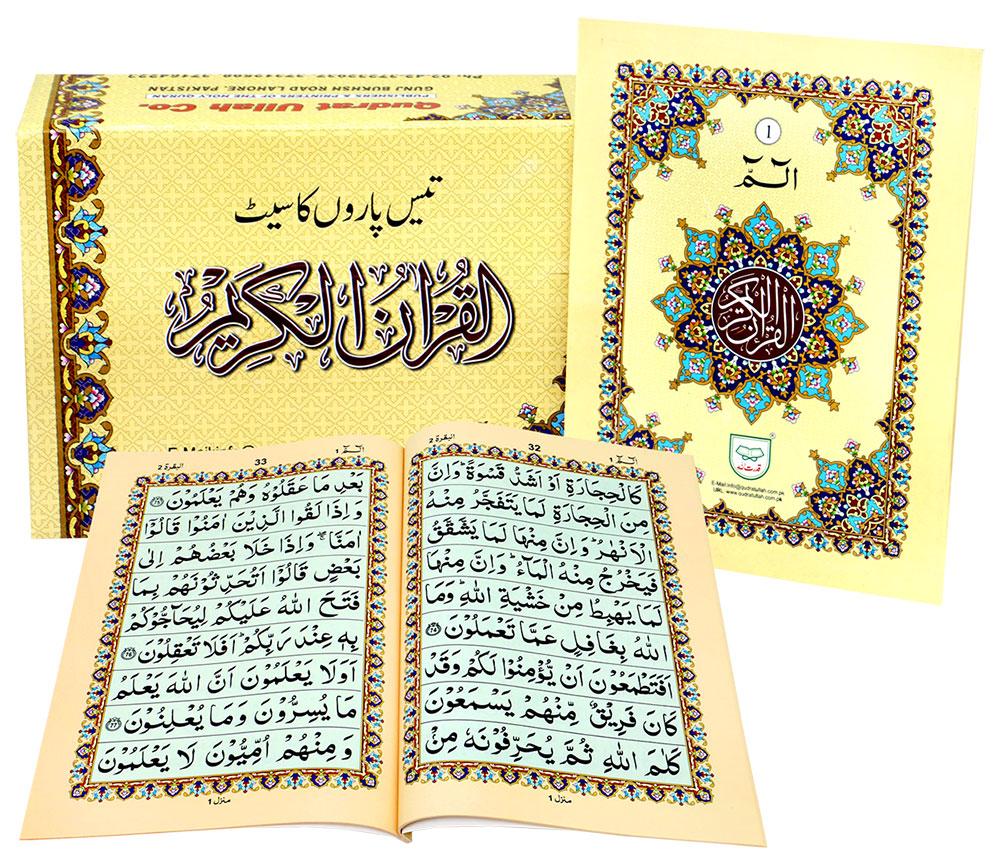 Qudrat Ullah Co.
PUBLISHERS & PRINTERS OF THE HOLY QURAN
GUNJ BUKHSH ROAD LAHORE. PAKISTAN
تیس پاروں کا سیٹ
القرآن الکریم
1
الٓمّٓ
القرآن الکریم
قدرت اللہ
E-Mail:info@qudratullah.com.pk
URL: www.qudratullah.com.pk
الٓمّٓ ١ 32 البقرة ٢
كَالْحِجَارَةِ اَوْ اَشَدُّ قَسْوَةً وَاِنَّ
مِنَ الْحِجَارَةِ لَمَا يَتَفَجَّرُ مِنْهُ
الْاَنْهٰرُ وَاِنَّ مِنْهَا لَمَا يَشَّقَّقُ
فَيَخْرُجُ مِنْهُ الْمَآءُ وَاِنَّ مِنْهَا
لَمَا يَهْبِطُ مِنْ خَشْيَةِ اللّٰهِ وَمَا
اللّٰهُ بِغَافِلٍ عَمَّا تَعْمَلُوْنَ
اَفَتَطْمَعُوْنَ اَنْ يُّؤْمِنُوْا لَكُمْ وَقَدْ
كَانَ فَرِيْقٌ مِّنْهُمْ يَسْمَعُوْنَ
كَلٰمَ اللّٰهِ ثُمَّ يُحَرِّفُوْنَهٗ مِنْۢ
منزل ١
الٓمّٓ ١ 33 البقرة ٢
بَعْدِ مَا عَقَلُوْهُ وَهُمْ يَعْلَمُوْنَ
وَاِذَا لَقُوا الَّذِيْنَ اٰمَنُوْا قَالُوْٓا
اٰمَنَّا وَاِذَا خَلَا بَعْضُهُمْ اِلٰى
بَعْضٍ قَالُوْٓا اَتُحَدِّثُوْنَهُمْ بِمَا
فَتَحَ اللّٰهُ عَلَيْكُمْ لِيُحَآجُّوْكُمْ
بِهٖ عِنْدَ رَبِّكُمْ اَفَلَا تَعْقِلُوْنَ
اَوَلَا يَعْلَمُوْنَ اَنَّ اللّٰهَ يَعْلَمُ
مَا يُسِرُّوْنَ وَمَا يُعْلِنُوْنَ
وَمِنْهُمْ اُمِّيُّوْنَ لَا يَعْلَمُوْنَ
منزل ١